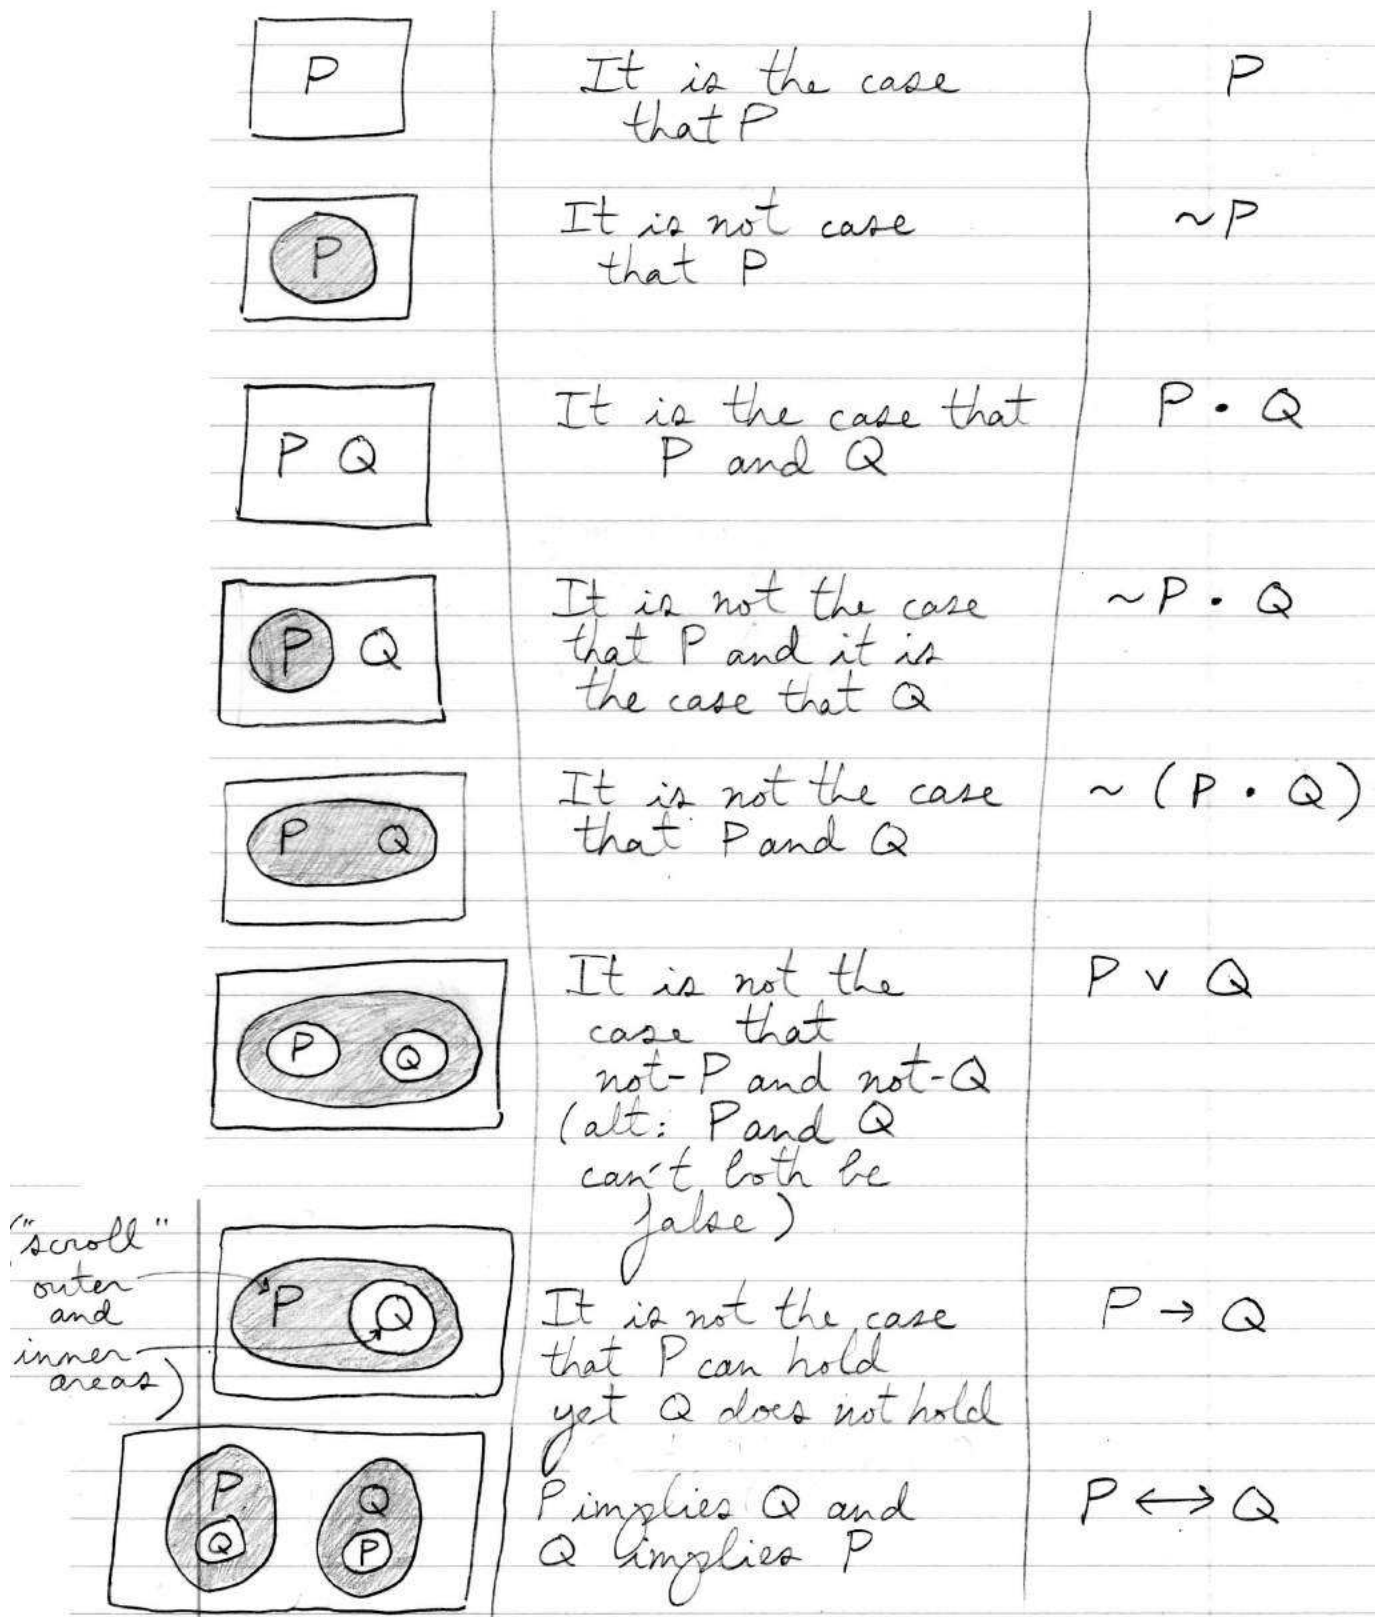 P
It is the case
that P
P
P
It is not case
that P
~P
P Q
It is the case that
P and Q
P • Q
P Q
It is not the case
that P and it is
the case that Q
~P • Q
P Q
It is not the case
that P and Q
~ (P • Q)
P Q
It is not the
case that
not-P and not-Q
(alt: P and Q
can't both be
false)
P v Q
("scroll"
outer
and
inner
areas)
P Q
It is not the case
that P can hold
yet Q does not hold
P → Q
P
Q
Q
P
P implies Q and
Q implies P
P ↔ Q